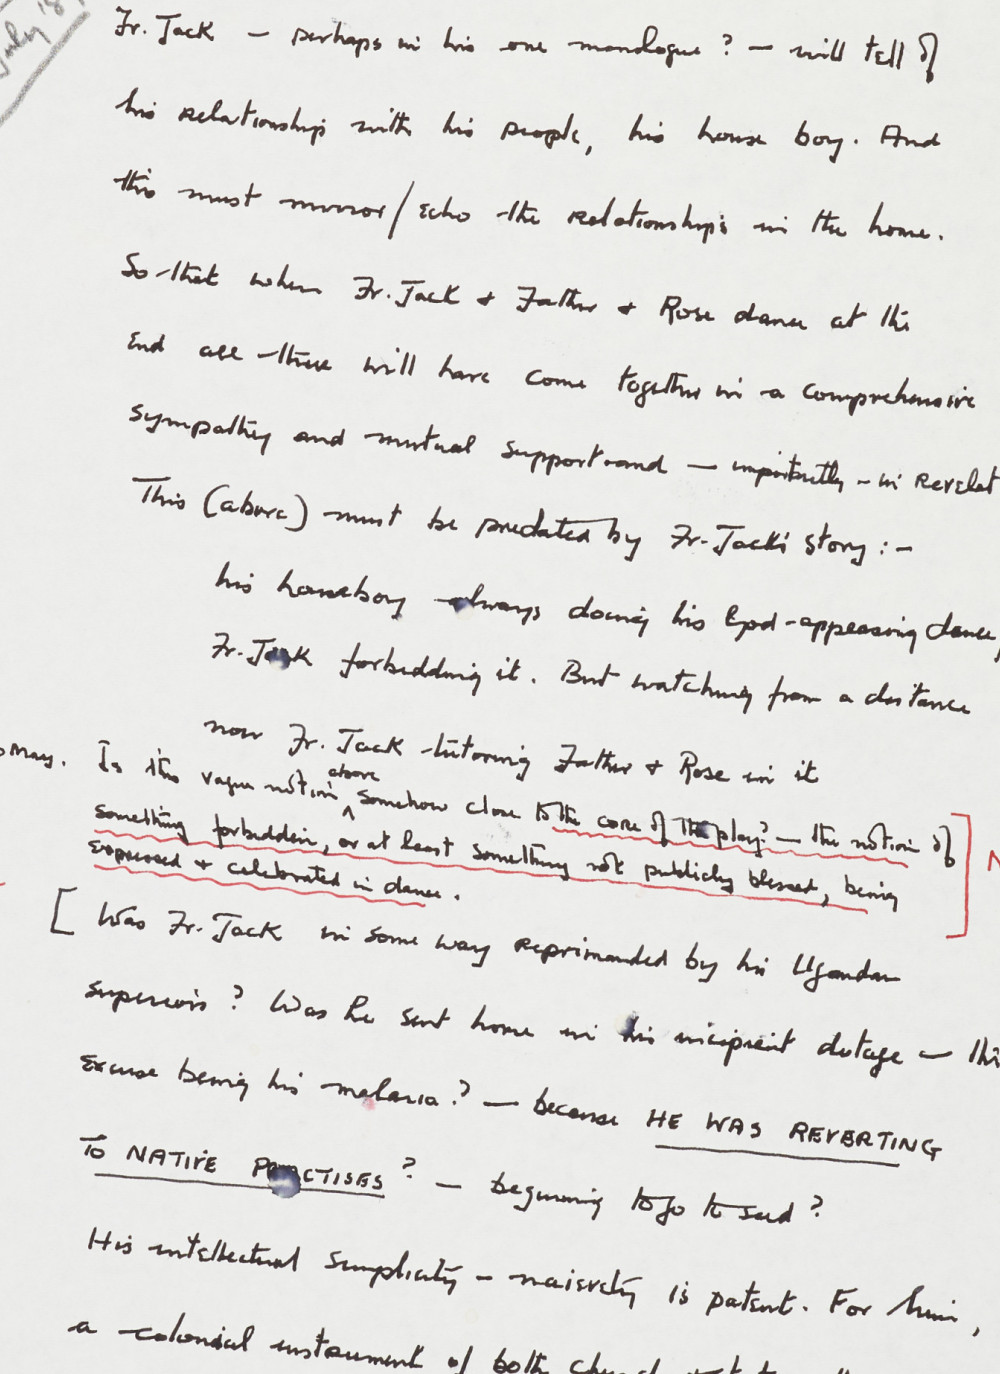 July '89
Fr. Jack – perhaps in his one monologue? – will tell of
his relationship with his people, his house boy. And
this must mirror/echo the relationships in the home.
So that when Fr. Jack + Father + Rose dance at the
end all three will have come together in a comprehensive
sympathy and mutual support and – importantly – in revelat
This (above) must be predated by Fr. Jack's story :–
his houseboy always doing his God-appeasing dance,
Fr. Jack forbidding it. But watching from a distance
now Fr. Jack tutoring Father + Rose in it
May. Is this vague notion above somehow close to the core of the play? – the notion of
something forbidden, or at least something not publicly blessed, being
expressed + celebrated in dance.
[ Was Fr. Jack in some way reprimanded by his Ugandan
superiors? Was he sent home in his incipient dotage – this
excuse being his malaria? – because HE WAS REVERTING
TO NATIVE PRACTISES? – beginning to go to seed?
His intellectual simplicity – naivety is patent. For him,
a colonial instrument of both church